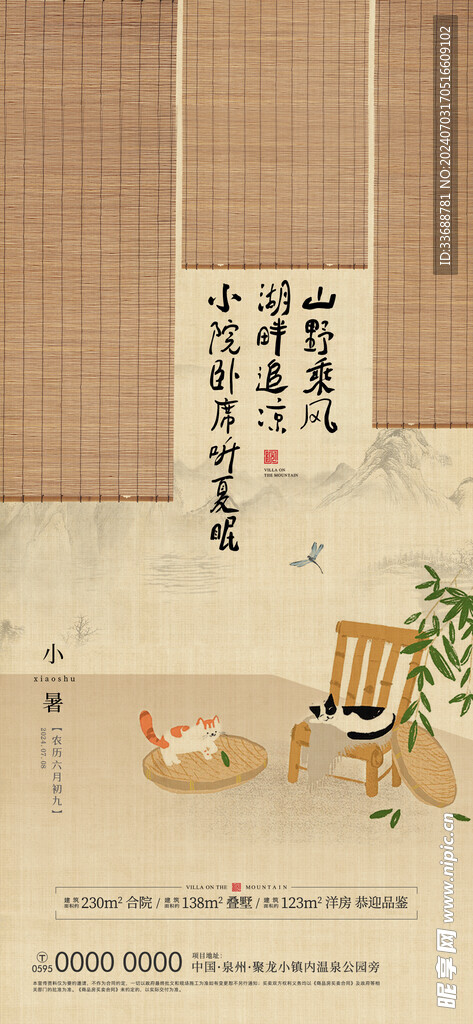 ID:33688781 NO:20240703170516609102
山野乘风
湖畔追凉
小院卧席听夏眠
VILLA ON
THE MOUNTAIN
小暑
xiaoshu
【农历六月初九】
2024.07.06
VILLA ON THE MOUNTAIN
建筑面积约230m²合院/建筑面积约138m²叠墅/建筑面积约123m²洋房 恭迎品鉴
T 0595 0000 0000
项目地址:
中国·泉州·聚龙小镇内温泉公园旁
昵享网 www.nipic.cn